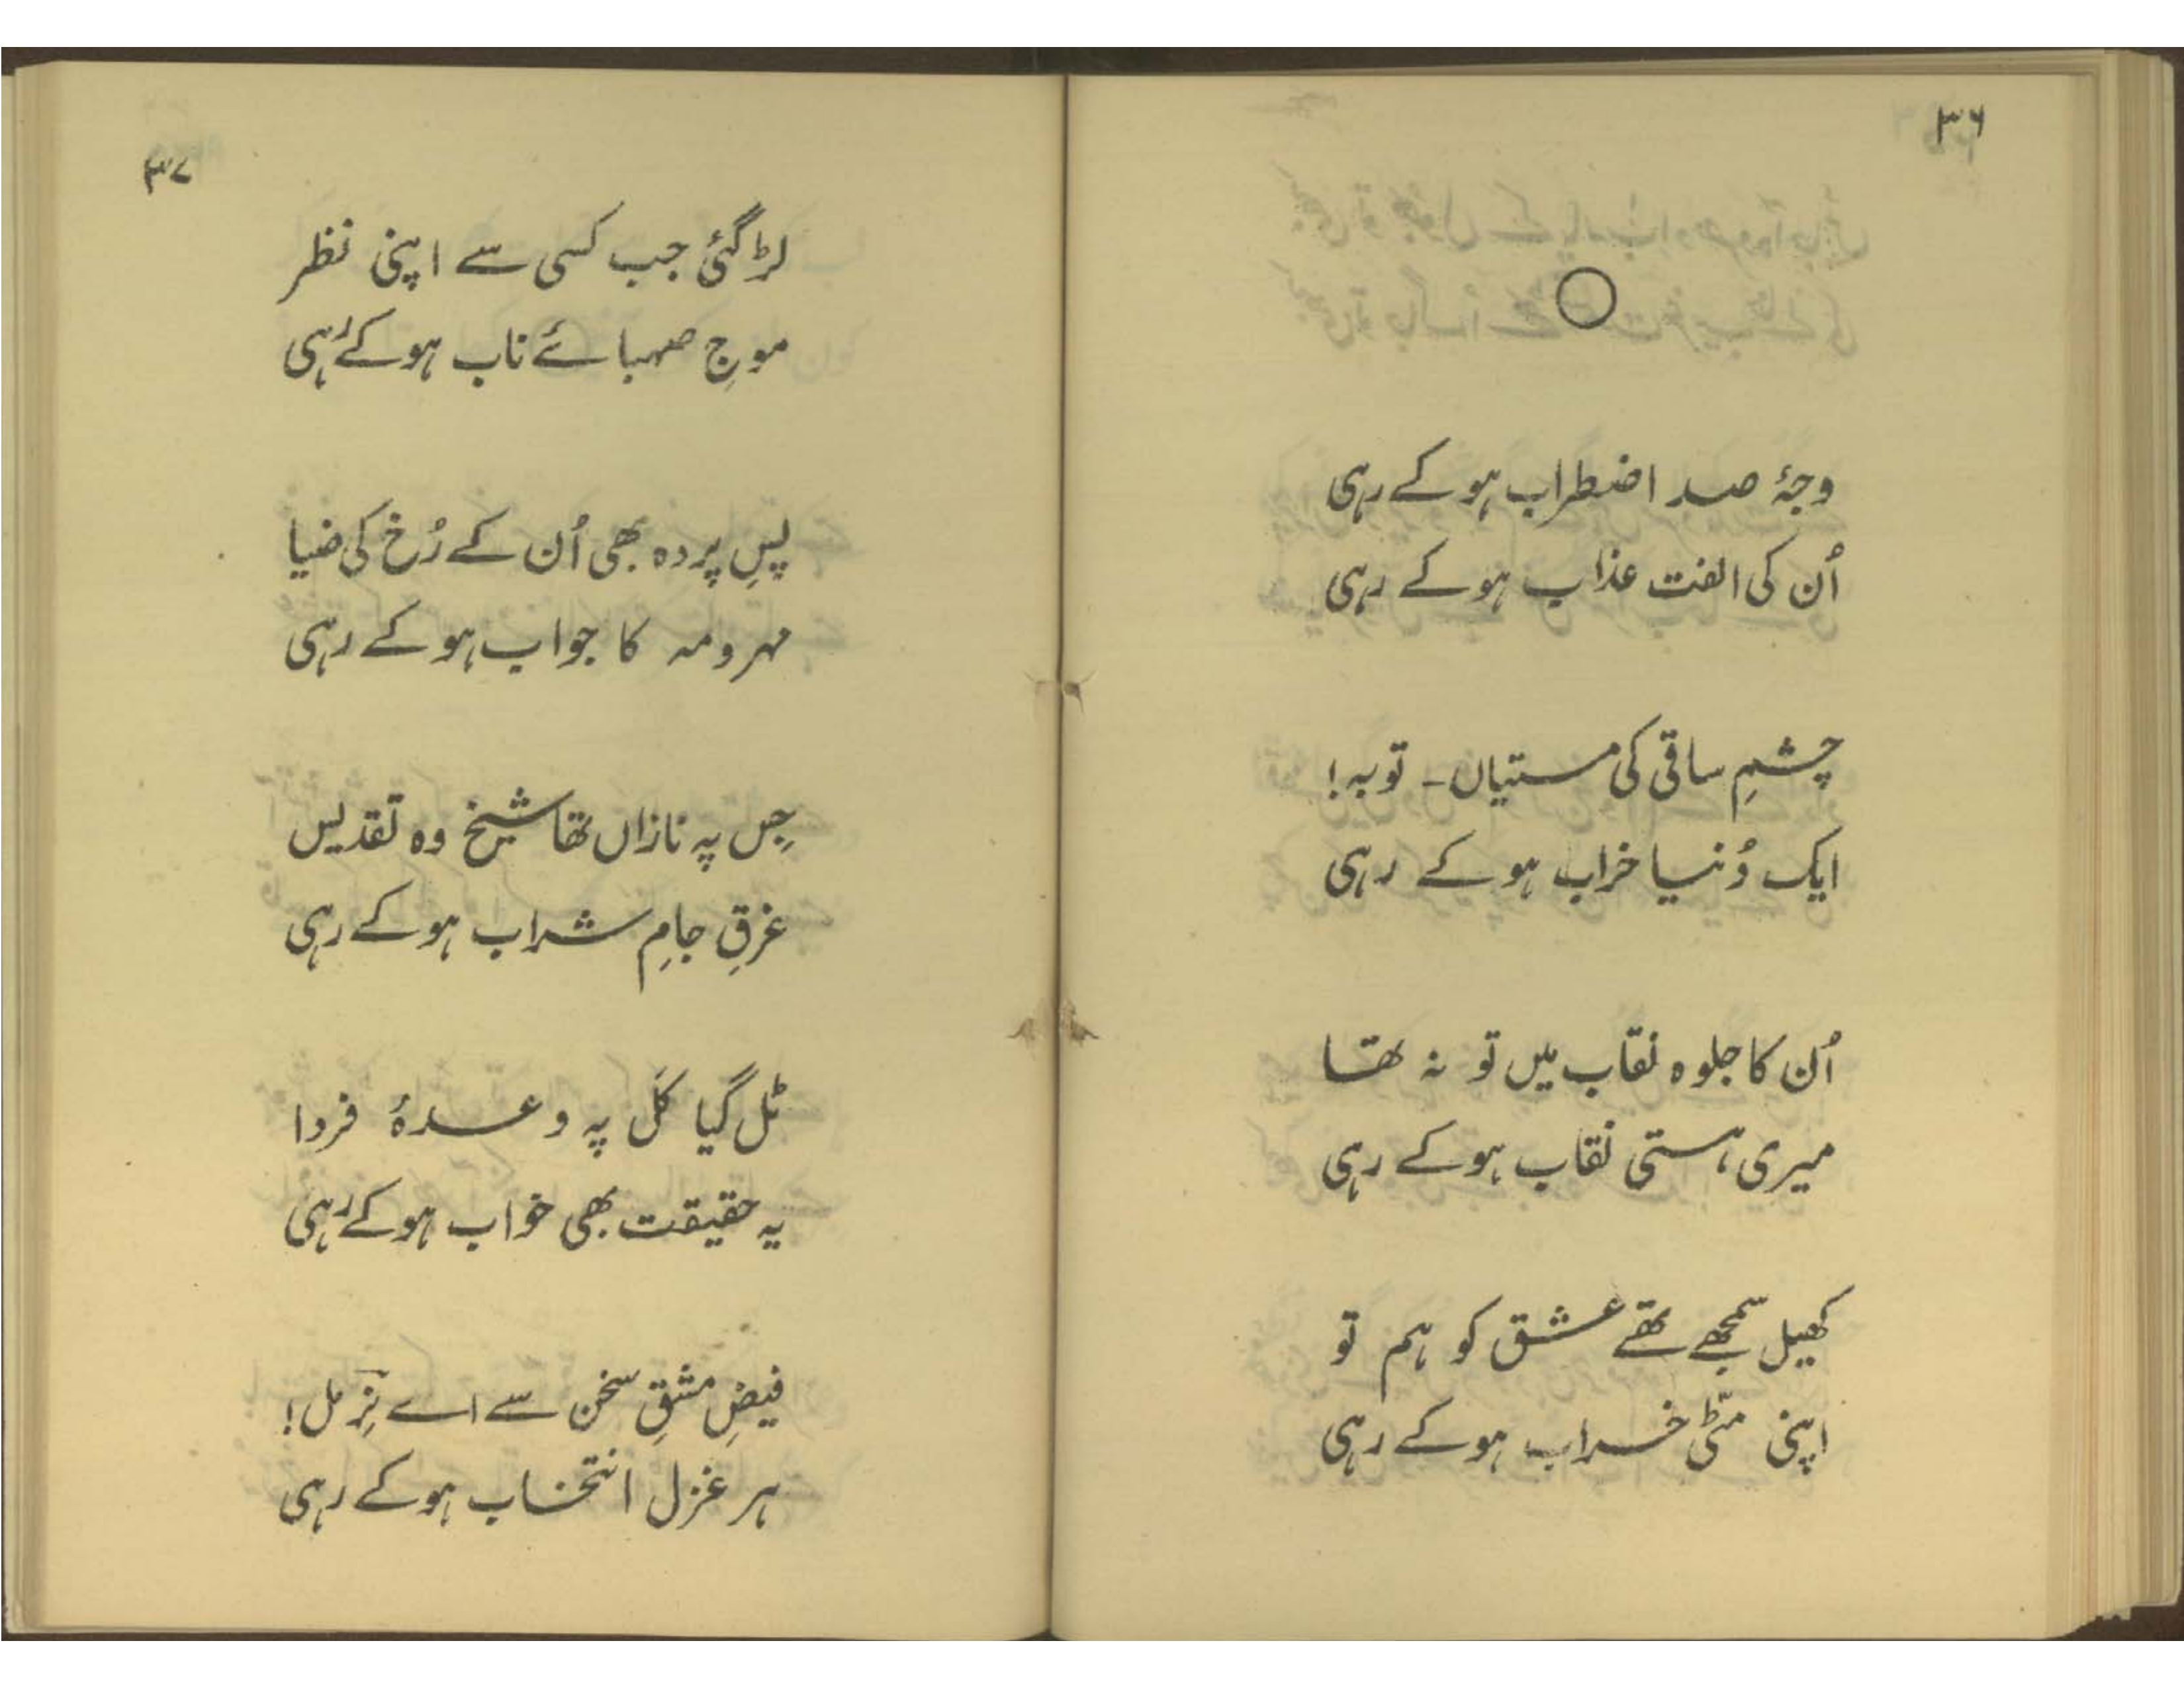 ۳۶
وجۂ صد اضطراب ہو کے رہی
اُن کی الفت عذاب ہو کے رہی
چشمِ ساقی کی مستیاں۔ توبہ!
ایک دُنیا خراب ہو کے رہی
اُن کا جلوہ نقاب میں تو نہ تھا
میری ہستی نقاب ہو کے رہی
کھیل سمجھے تھے عشق کو ہم تو
اپنی مٹّی خراب ہو کے رہی
۳۷
لڑ گئی جب کسی سے اپنی نظر
موجِ صہبائے ناب ہو کے رہی
پسِ پردہ بھی اُن کے رُخ کی ضیا
مہر و مہ کا جواب ہو کے رہی
جِس پہ نازاں تھا شیخ وہ تقدیس
غرقِ جامِ شراب ہو کے رہی
ٹل گیا کَل پہ وعدۂ فردا
یہ حقیقت بھی خواب ہو کے رہی
فیضِ مشقِ سخن سے اے نِرمل!
ہر غزل انتخاب ہو کے رہی